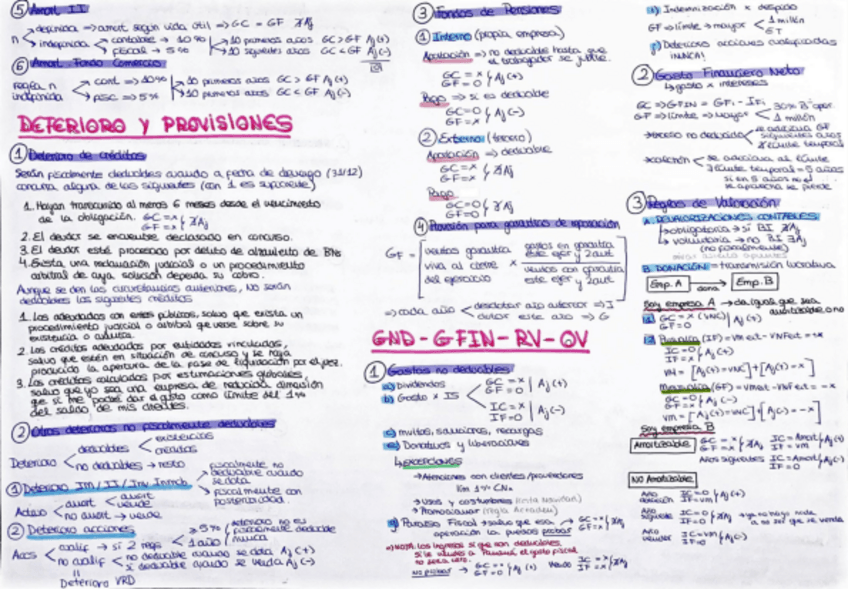 ⑤ Amort. II
definida => amort según vida útil => GC = GF ∄Aj
n
indefinida
contable → 10%
fiscal → 5%
10 primeros años GC > GF Aj(+)
10 siguientes años GC < GF Aj(-)
⑥ Amort. Fondo Comercio
regla n
indefinida
cont => 10%
fisc => 5%
10 primeros años GC > GF Aj(+)
10 primeros años GC < GF Aj(-)
DETERIORO Y PROVISIONES
① Deterioro de créditos
Serán fiscalmente deducibles cuando a fecha de devengo (31/12)
concurra alguna de las siguientes (con 1 es suficiente)
1. Hayan transcurrido al menos 6 meses desde el vencimiento
de la obligación. GC = x GF = x ∄Aj
2. El deudor se encuentre declarado en concurso.
3. El deudor esté procesado por delito de alzamiento de BNs
4. Exista una reclamación judicial o un procedimiento
arbitral de cuya solución dependa su cobro.
Aunque se den las circunstancias anteriores, No serán
deducibles los siguientes créditos
1. Los adeudados con entes públicos, salvo que exista un
procedimiento judicial o arbitral que verse sobre su
existencia o cuantía.
2. Los créditos adeudados por entidades vinculadas,
salvo que estén en situación de concurso y se haya
producido la apertura de la fase de liquidación por el juez.
3. Los créditos calculados por estimaciones globales,
salvo que yo sea una empresa de reducida dimensión
que sí me podré dar el gasto como límite del 1%
del saldo de mis clientes.
② Otros deterioros no fiscalmente deducibles
Deterioro
deducibles
existencias
créditos
no deducibles → resto
① Deterioro IM / II / Inv. Inmob.
Activo
amort
amort
vende
no amort → vende
fiscalmente no
deducible cuando
se dota
fiscalmente con
posterioridad.
② Deterioro acciones
Accs
cualif → si 2 reqs
≥ 5%
1 año
deterioro no es
fiscalmente deducible
nunca
no cualif
no deducible cuando se dota Aj(+)
sí deducible cuando se venda Aj(-)
Deterioro VRD
③ Fondos de Pensiones
① Interno (propia empresa)
Aportación => no deducible hasta que
el trabajador se jubile.
GC = x
GF = 0 Aj(+)
Pago => sí es deducible
GC = 0
GF = x Aj(-)
② Externo (tercero)
Aportación => deducible
GC = x
GF = x ∄Aj
Pago
GC = 0
GF = 0 ∄Aj
④ Provisión para garantías de reparación
GF =
ventas garantía
viva al cierre
del ejercicio
x
gastos en garantía
este ejer y 2 ant
ventas con garantía
este ejer y 2 ant
=> cada año
desdotar año anterior => I
dotar este año => G
GND - GFIN - RV - OV
① Gastos no deducibles
a) dividendos
b) Gasto x IS
GC = x
GF = 0 Aj(+)
IC = x
IF = 0 Aj(-)
c) multas, sanciones, recargos
e) Donativos y liberaciones
↳ excepciones
→ Atenciones con clientes/proveedores
lím 1% CN
→ Usos y costumbres (cesta Navidad)
→ Promocionar
g) Paraíso Fiscal → salvo que esa
operación la puedas probar
GC = x
GF = x ∄Aj
=> NOTA: los ingresos sí que son deducibles.
Si le vendes a Panamá el gasto fiscal
no será cero.
No probar → GC = x
GF = 0 Aj(+)
Vende IC = x
IF = x ∄Aj
i) Indemnización x despido
GF => límite → mayor
1 millón
ET
j) Deterioros acciones cualificadas
¡NUNCA!
② Gasto Financiero Neto
↳ gasto x intereses
GC => GFIN = GFi - IFi
GF => límite => mayor
30% Bº oper
1 millón
→ exceso no deducido
se adiciona GF
siguientes años
∄ límite temporal
→ coeficiente
se adiciona al límite
∃ límite temporal = 5 años
si en 5 años no el
se aprovecha se pierde
③ Reglas de Valoración
A. REVALORIZACIONES CONTABLES
→ obligatoria → sí BI ∄Aj
→ voluntaria → no BI ∃Aj
(no permanente)
B. DONACIÓN = transmisión lucrativa
Emp. A → dona → Emp. B
Soy empresa A → da igual que sea
amortizable o no
GC = x (VNC)
GF = 0 Aj(+)
Plusvalía (IF) = Vmdo - VNFisc = +x
IC = 0
IF = x Aj(+)
VM = [Aj(+) = VNC] + [Aj(+) = x]
Minusvalía (GF) = Vmdo - VNFisc = -x
GC = 0
GF = x Aj(-)
VM = [Aj(+) = VNC] + [Aj(-) = -x]
Soy empresa B
Amortizable
GC = x
GF = x ∄Aj
IC = Amort
IF = 0 Aj(-)
Años siguientes IC = Amort
IF = 0 Aj(-)
No Amortizable
Año
donación IC = 0
IF = VM Aj(+)
Año
siguiente IC = 0
IF = 0 ∄Aj → ya no hago nada
a no ser que se venda
Año
vender IC = VM
IF = 0 Aj(-)